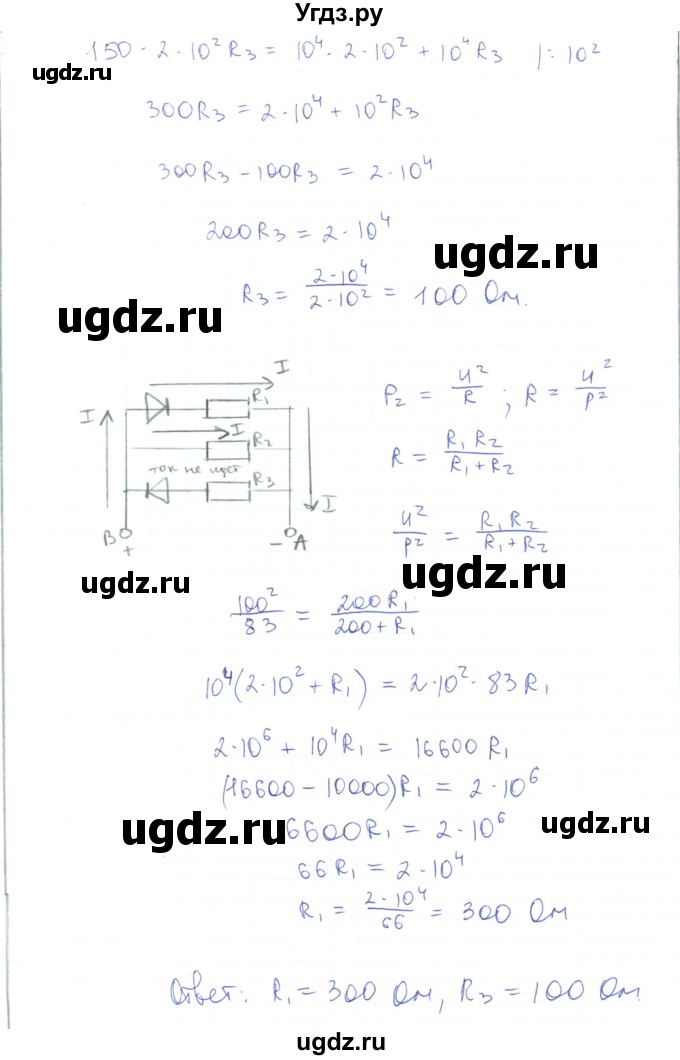 Угдз.ру
150 · 2 · 10² R₃ = 10⁴ · 2 · 10² + 10⁴ R₃ |: 10²
ugdz.ru
300R₃ = 2 · 10⁴ + 10² R₃
300R₃ − 100R₃ = 2 · 10⁴
200R₃ = 2 · 10⁴
ugdz.ru
R₃ = 2·10⁴/2·10² = 100 Ом.
ugdz.ru
I
I R₁
I R₂
ток не идет R₃
I
B + − A
P₂ = U²/R ; R = U²/P²
R = R₁ R₂/R₁ + R₂
U²/P² = R₁ R₂/R₁ + R₂
ugdz.ru
ugdz.ru
100²/83 = 200 R₁/200 + R₁
10⁴(2·10² + R₁) = 2·10² · 83 R₁
2·10⁶ + 10⁴R₁ = 16600 R₁
(16600 − 10000)R₁ = 2 · 10⁶
ugdz.ru
6600R₁ = 2 · 10⁶
ugdz.ru
66 R₁ = 2 · 10⁴
R₁ = 2 · 10⁴/66 = 300 Ом
Ответ: R₁ = 300 Ом, R₃ = 100 Ом
ugdz.ru
ugdz.ru